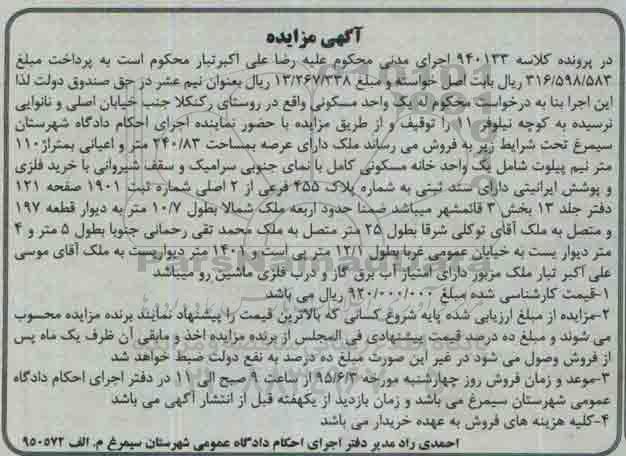 آگهی مزایده
در پرونده کلاسه ۹۴۰۱۳۳ اجرای مدنی محکوم علیه رضا علی اکبرتبار محکوم است به پرداخت مبلغ
۳۱۶/۵۹۸/۵۸۳ ریال بابت اصل خواسته و مبلغ ۱۳/۲۶۷/۳۳۸ ریال بعنوان نیم عشر در حق صندوق دولت لذا
این اجرا بنا به درخواست محکوم له یک واحد مسکونی واقع در روستای رکنکلا جنب خیابان اصلی و نانوایی
نرسیده به کوچه نیلوفر ۱۱ را توقیف و از طریق مزایده با حضور نماینده اجرای احکام دادگاه شهرستان
سیمرغ تحت شرایط زیر به فروش می رساند ملک دارای عرصه بمساحت ۲۴۰/۸۳ متر و اعیانی بمتراژ۱۱۰
متر نیم پیلوت شامل یک واحد خانه مسکونی کامل با نمای جنوبی سرامیک و سقف شیروانی با خرید فلزی
و پوشش ایرانیتی دارای سند ثبتی به شماره پلاک ۴۵۵ فرعی از ۲ اصلی شماره ثبت ۱۹۰۱ صفحه ۱۲۱
دفتر جلد ۱۳ بخش ۳ قائمشهر میباشد ضمنا حدود اربعه ملک شمالا بطول ۱۰/۷ متر به دیوار قطعه ۱۹۷
و متصل به ملک آقای توکلی شرقا بطول ۲۵ متر متصل به ملک محمد تقی رحمانی جنوبا بطول ۵ متر و ۴
متر دیوار بست به خیابان عمومی غربا بطول ۱۲/۱ متر پی است و ۱۴۰۰ متر دیواربست به ملک آقای موسی
علی اکبر تبار ملک مزبور دارای امتیاز آب برق گاز و درب فلزی ماشین رو میباشد
۱-قیمت کارشناسی شده مبلغ ۹۲۰/۰۰۰/۰۰۰ ریال می باشد
۲-مزایده از مبلغ ارزیابی شده پایه شروع کسانی که بالاترین قیمت را پیشنهاد نمایند برنده مزایده محسوب
می شوند و مبلغ ده درصد قیمت پیشنهادی فی المجلس از برنده مزایده اخذ و مابقی آن ظرف یک ماه پس
از فروش وصول می شود در غیر این صورت مبلغ ده درصد به نفع دولت ضبط خواهد شد
۳-موعد و زمان فروش روز چهارشنبه مورخه ۹۵/۶/۳ از ساعت ۹ صبح الی ۱۱ در دفتر اجرای احکام دادگاه
عمومی شهرستان سیمرغ می باشد و زمان بازدید از یکهفته قبل از انتشار آگهی می باشد
۴-کلیه هزینه های فروش به عهده خریدار می باشد
احمدی راد مدیر دفتر اجرای احکام دادگاه عمومی شهرستان سیمرغ م. الف ۹۵۰۵۷۲